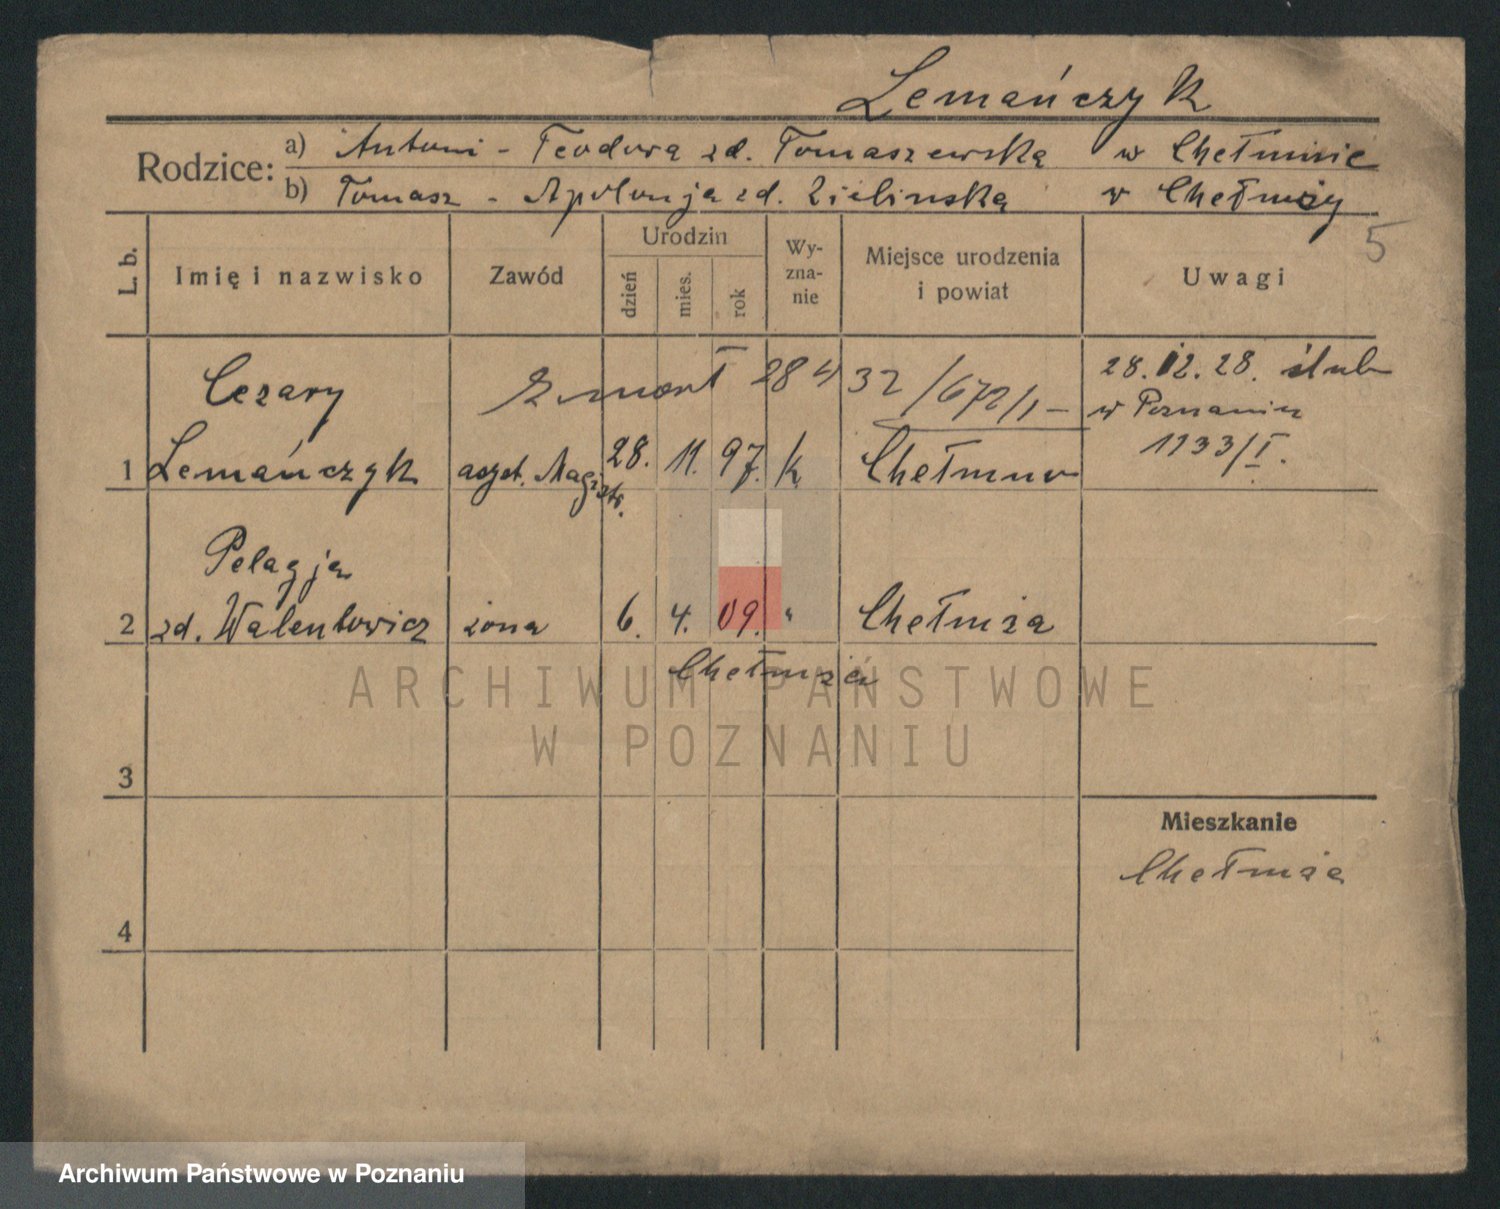 Lemańczyk
Rodzice:
a) Antoni - Teodora zd. Tomaszewska w Chełmnie
b) Tomasz - Apolonja zd. Zielinska w Chełmży
5
L. b.
Imię i nazwisko
Zawód
Urodzin
dzień
mies.
rok
Wy-
zna-
nie
Miejsce urodzenia
i powiat
Uwagi
Zmarł 28 4 32/672/I-
28.12.28. ślub
w Poznaniu
1133/I.
Cezary
1 Lemańczyk
28. 11. 97. k Chełmno
Pelagja
2 zd. Walentowicz żona 6. 4. 09. " Chełmża
ARCHIWUM PAŃSTWOWE
W POZNANIU
3
Mieszkanie
Chełmża
4
Archiwum Państwowe w Poznaniu